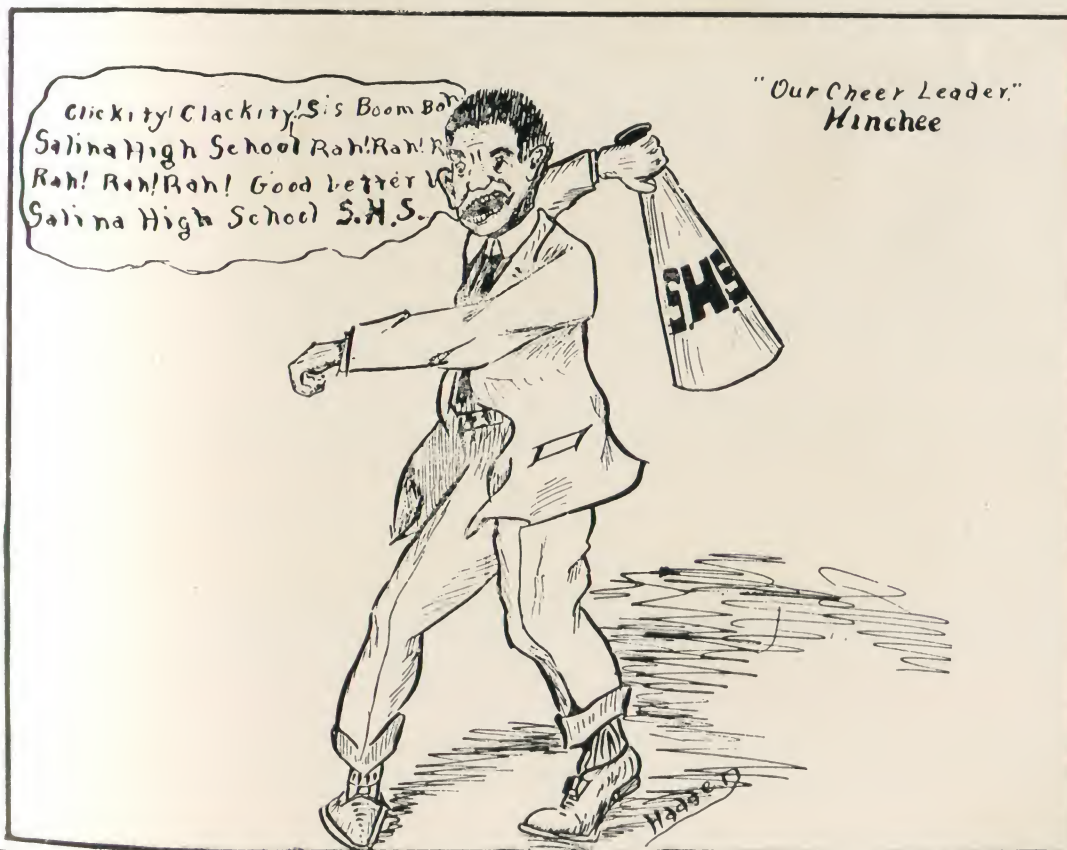 Clickity! Clackity! Sis Boom Bah
Salina High School Rah! Rah! R
Rah! Rah! Rah! Good Letter
Salina High School S.H.S.
"Our Cheer Leader."
Hinchee
S.H.S